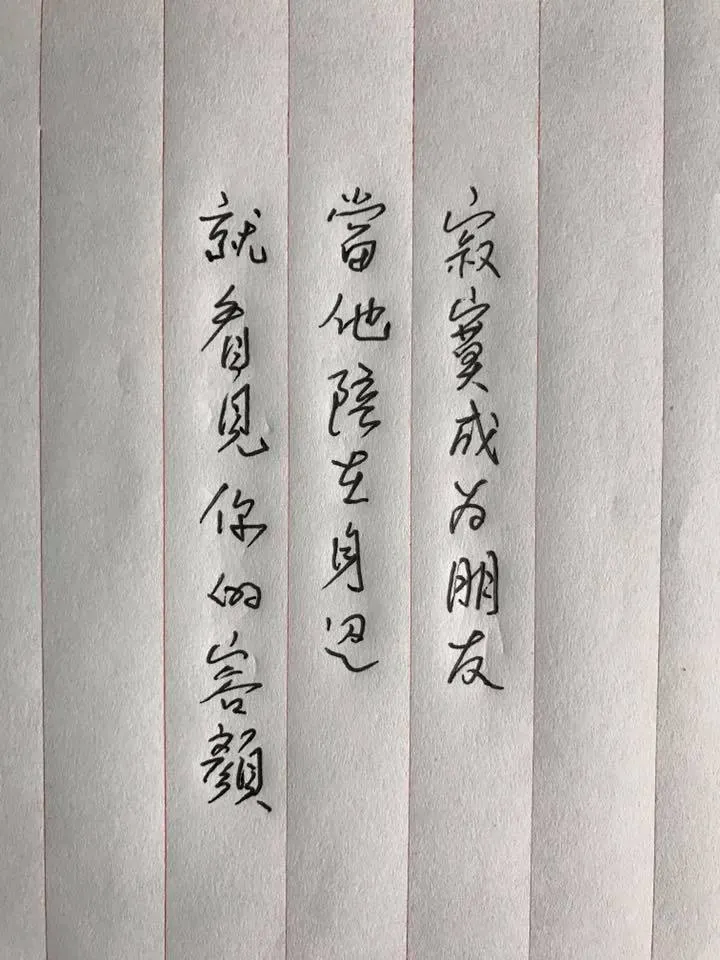 寂寞成為朋友
當他陪在身邊
就看見你的容顏